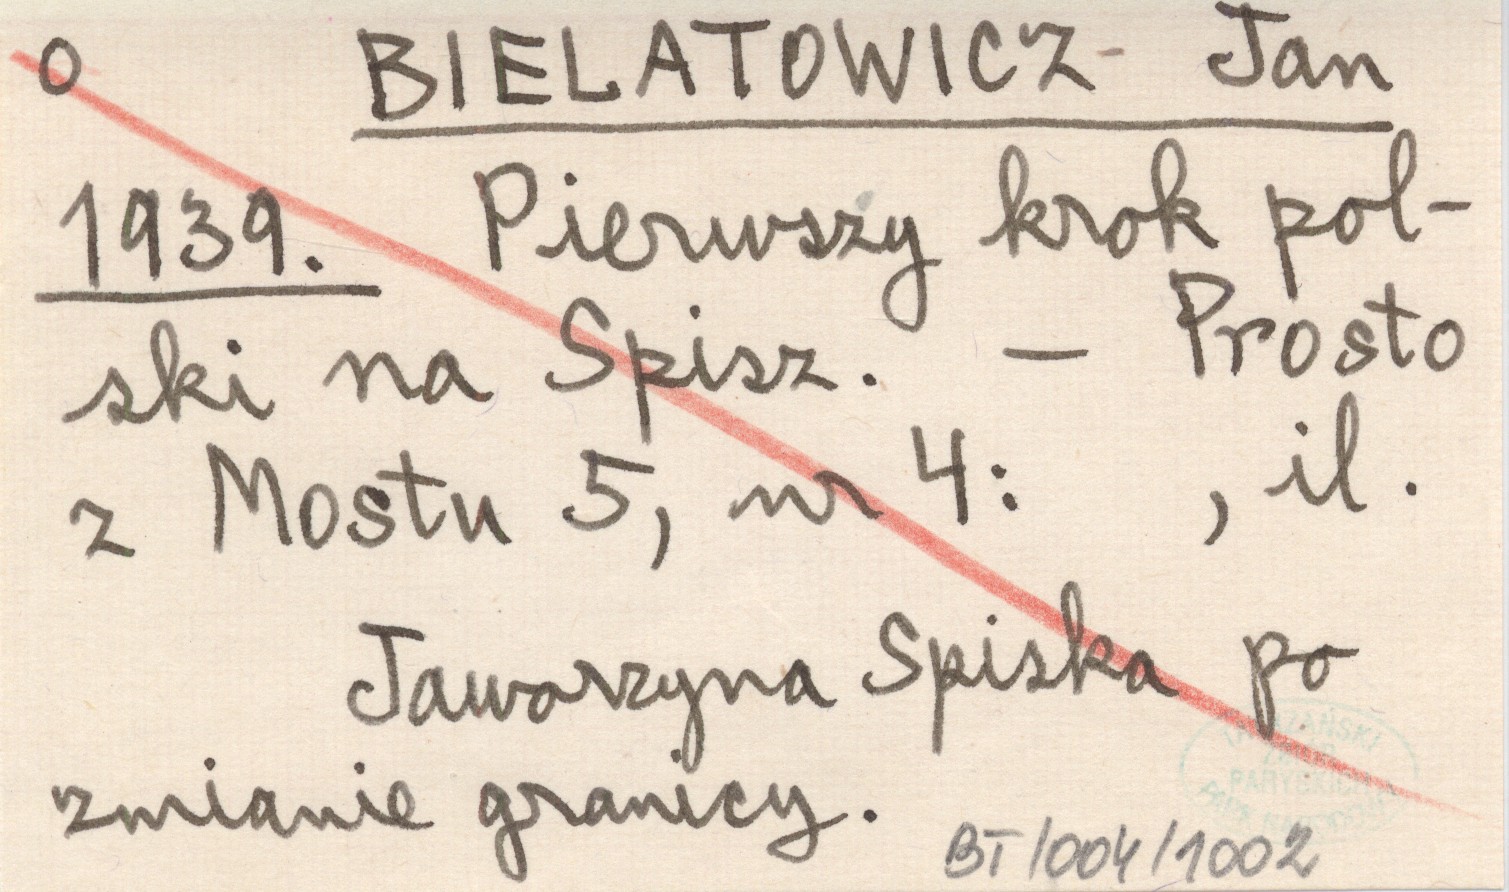 O BIELATOWICZ Jan
1939. Pierwszy krok pol-
ski na Spisz. — Prosto
z Mostu 5, nr 4: , il.
Jaworzyna Spiska po
zmianie granicy.
TATRZAŃSKI
PARYSKICH
PARK NARODOWY
BT/004/1002